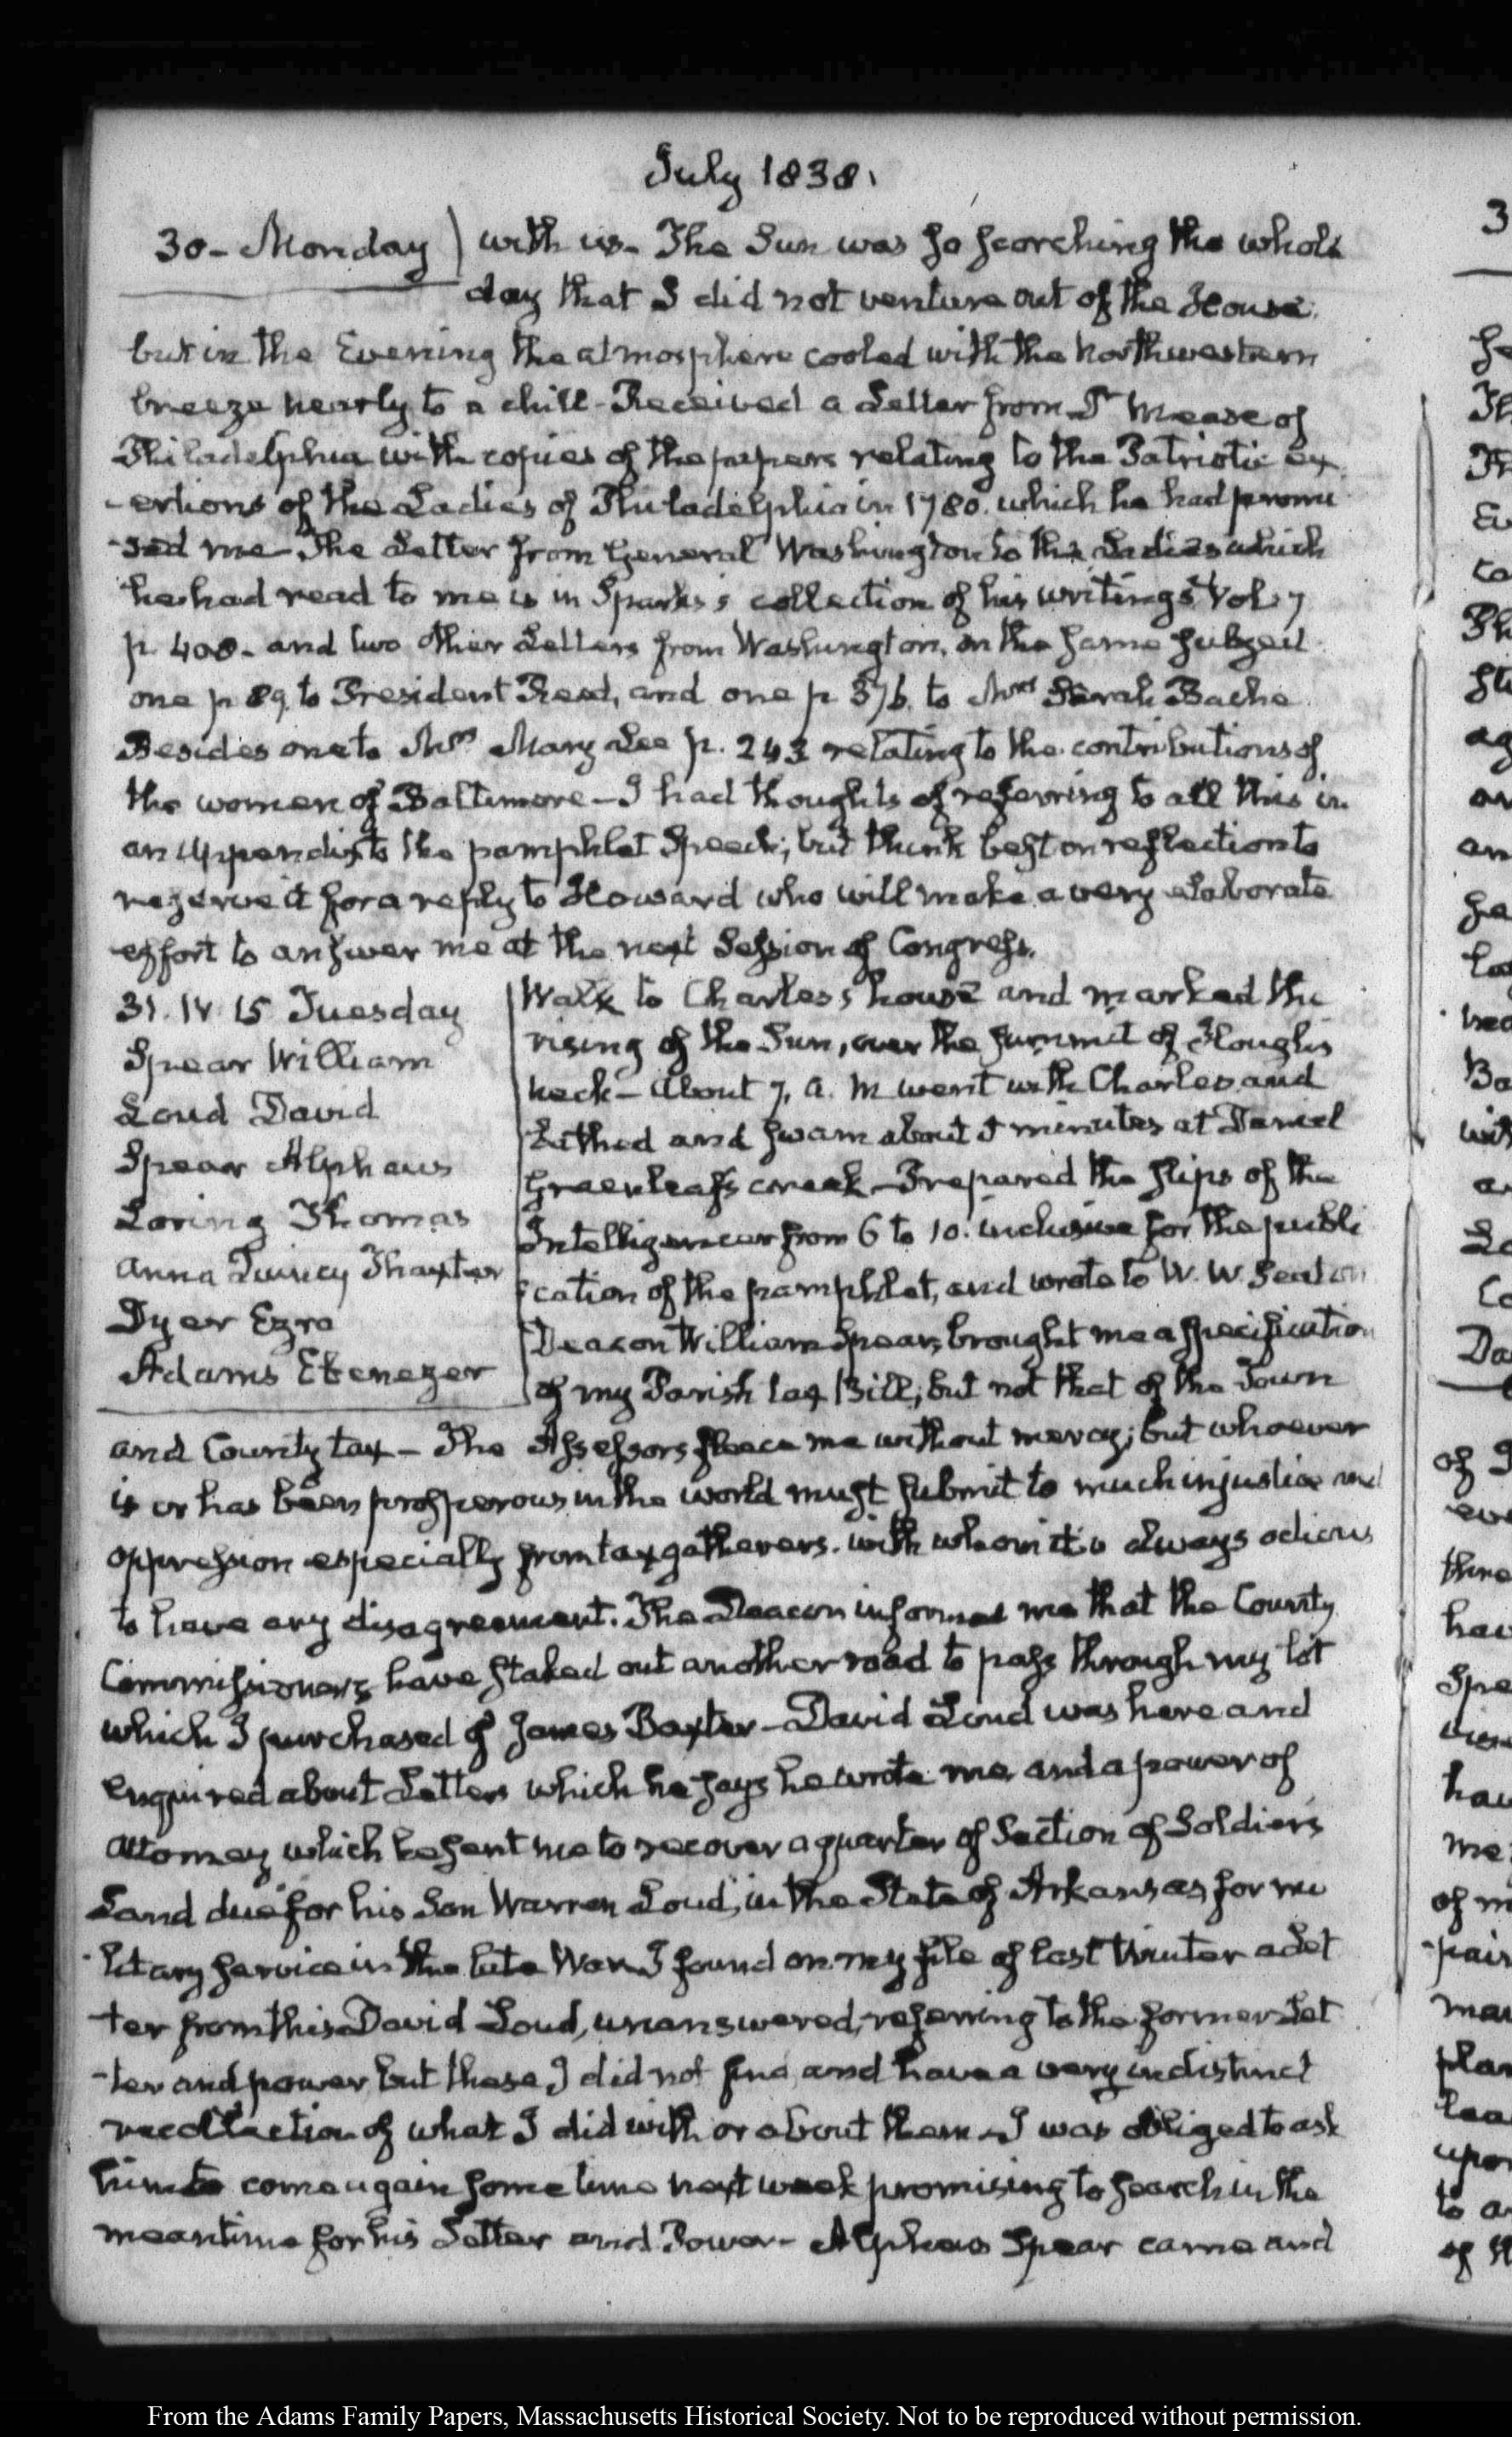 July 1838.
30 - Monday
with us - The Sun was so scorching the whole
day that I did not venture out of the House.
but in the Evening the atmosphere cooled with the Northwestern
breeze nearly to a chill - Received a Letter from Dr Mease of
Philadelphia with copies of the papers relating to the Patriotic ex
-ertions of the Ladies of Philadelphia in 1780. which he had promi
-sed me - The Letter from General Washington to the Ladies which
he had read to me is in Sparks's collection of his writings Vol. 7
p. 408 - and two other Letters from Washington, on the same subject
one p 89. to President Reed, and one p 376. to Mrs Sarah Bache
Besides one to Mrs Mary Lee p. 243 relating to the contributions of
the women of Baltimore - I had thoughts of referring to all this in
an Appendix to the pamphlet Speech; but think best on reflection to
reserve it for a reply to Howard who will make a very elaborate
effort to answer me at the next Session of Congress.
31. IV. 15 Tuesday
Spear William
Loud David
Spear Alpheus
Loring Thomas
Anna Quincy Thaxter
Dyer Ezra
Adams Ebenezer
Walk to Charles's house and marked the
rising of the Sun, over the summit of Houghs
neck - About 7. A. M. went with Charles and
bathed and swam about minutes at Daniel
Greenleaf's creek - Prepared the slips of the
Intelligencer from 6 to 10. inclusive for the publi
cation of the pamphlet, and wrote to W. W. Seaton
Deacon William Spear, brought me a specification
of my Parish tax Bill; but not that of the Town
and County tax - The Assessors fleece me without mercy; but whoever
is or has been prosperous in the world must submit to much injustice and
oppression especially from taxgatherers. with whom it is always odious
to have any disagreement. The Deacon informed me that the County
Commissioners have staked out another road to pass through my lot
which I purchased of James Baxter - David Loud was here and
enquired about Letters which he says he wrote me, and a power of
attorney which he sent me to recover a quarter of Section of Soldiers
Land due for his Son Warren Loud, in the State of Arkansas for mi
litary service in the late War. I found on my file of last Winter a Let
ter from this David Loud, unanswered, referring to the former Let
-ter and power, but these, I did not find, and have a very indistinct
recollection of what I did with or about them - I was obliged to ask
him to come again some time next week promising to search in the
meantime for his Letter and Power - Alpheus Spear came and
From the Adams Family Papers, Massachusetts Historical Society. Not to be reproduced without permission.